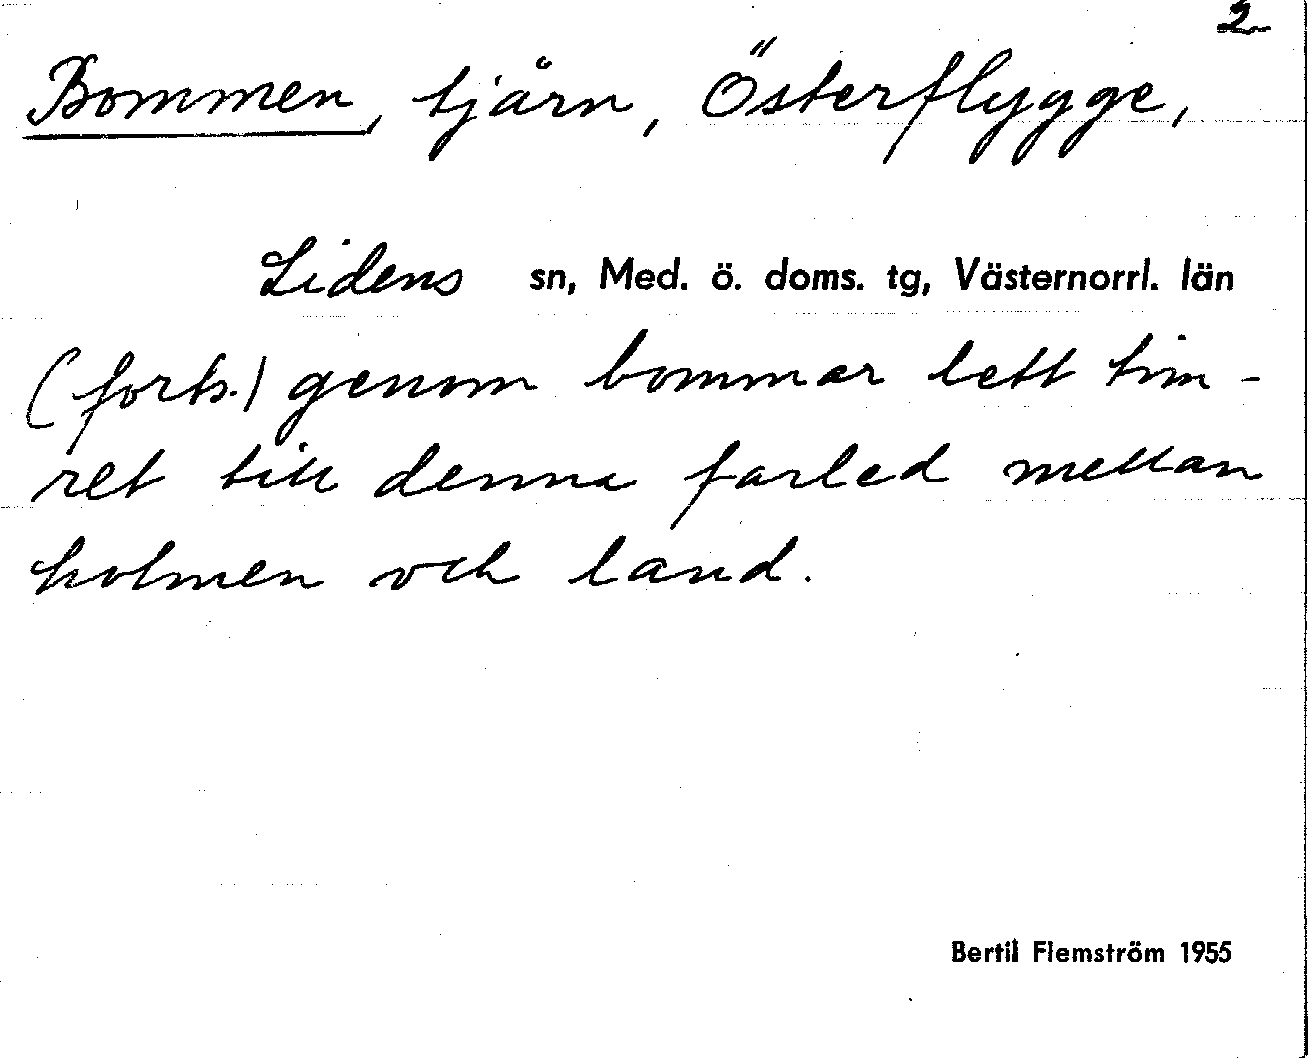 2
Bommen, tjärn, Österflygge,
Lidens sn, Med. ö. doms. tg, Västernorrl. län
(forts.) genom bommar lett tim-
ret till denna farled mellan
holmen och land.
Bertil Flemström 1955